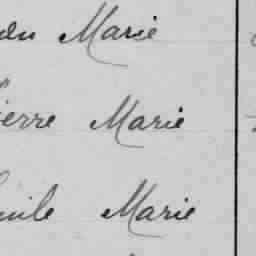 Marie
ierre Marie
mile Marie